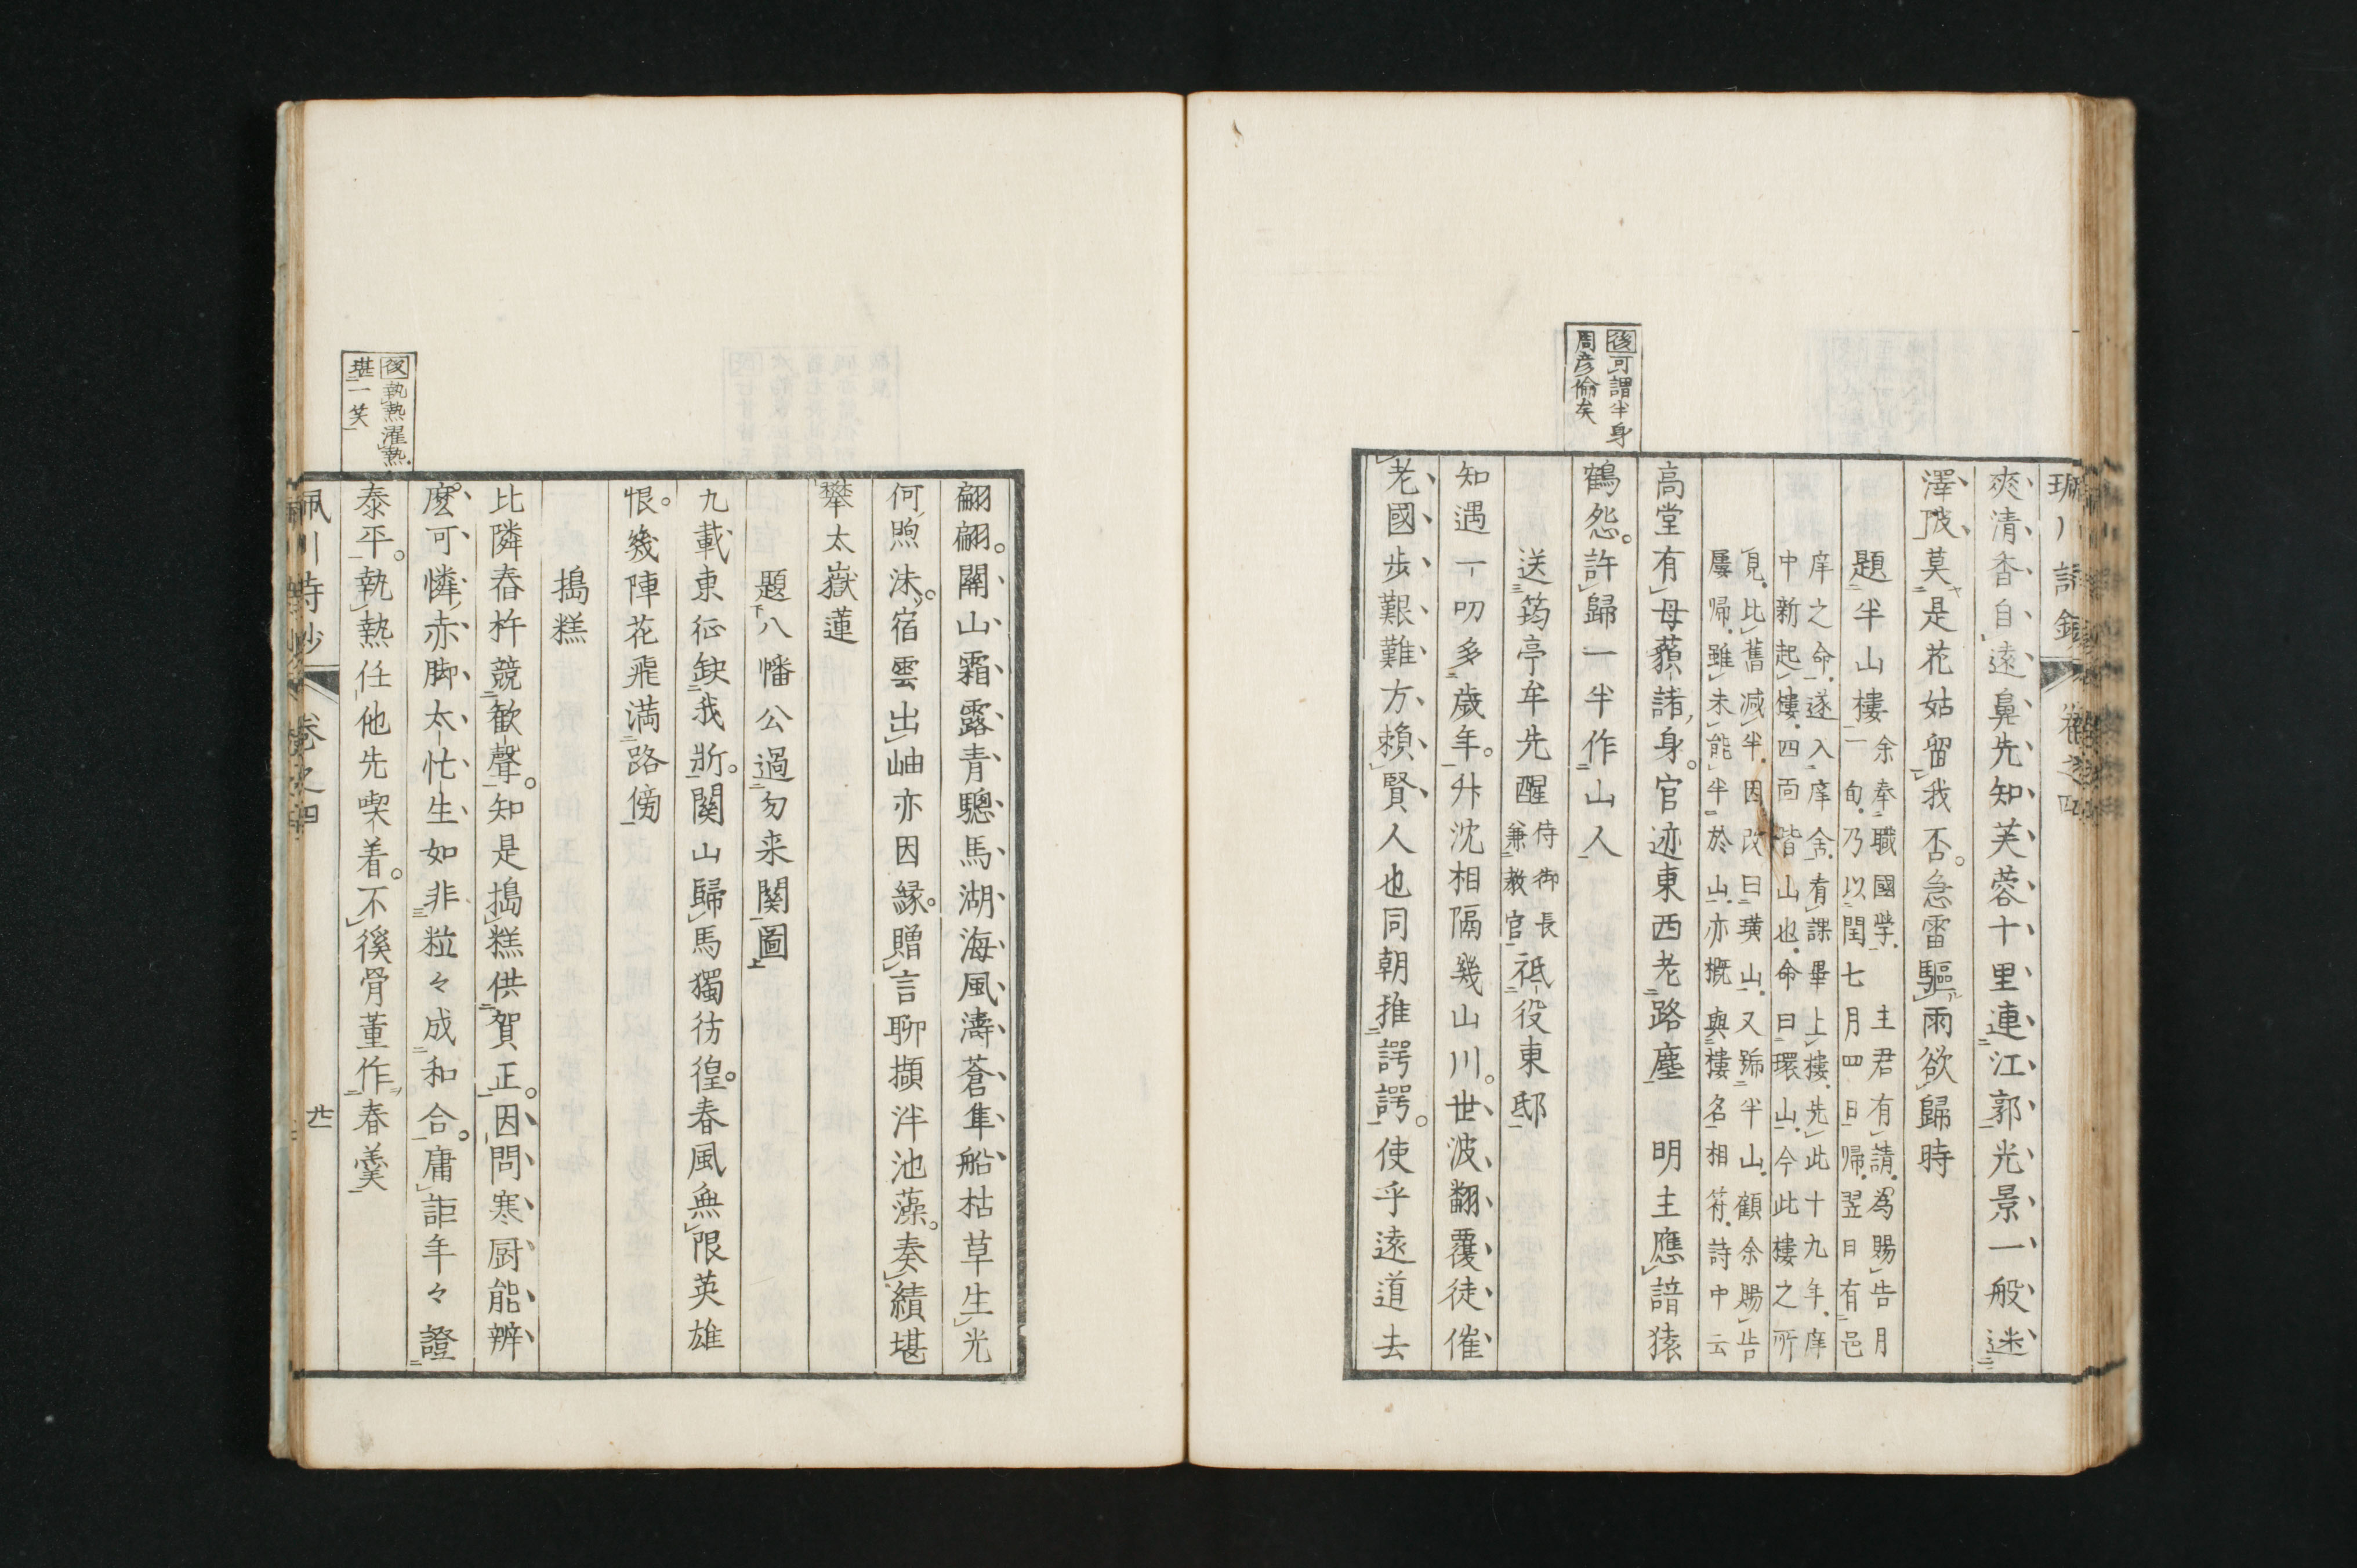 爽清香自遠鼻先知芙蓉十里連江郭光景一般迷
澤陂莫是花姑留我否急雷驅雨欲歸時
題半山樓
余奉職國學主君有請為賜告月
一旬乃以閏七月四日歸翌日有邑
庠之命遂入庠舍有課畢上樓先此十九年庠
中新起樓四面皆山也命曰環山今此樓之所
見比舊減半因改曰璜山又號半山顧余賜告
屢歸雖未能半於山亦概與樓名相符詩中云
高堂有母蘋諸身官迹東西老路塵　明主應諳猿
鶴怨許歸一半作山人
後可謂半身
周彥倫矣
送筠亭牟先醒侍御長兼教官祗役東邸
知遇一叨多歲年升沈相隔幾山川世波翻覆徒催
老國步艱難方賴賢人也同朝推諤諤使乎遠道去
翩翩關山霜露青驄馬湖海風濤蒼隼船枯草生光
何煦沫宿雲出岫亦因緣贈言聊擷泮池藻奏績堪
攀太嶽蓮
題八幡公過勿来関圖
九載東征缺我斨関山歸馬獨彷徨春風無限英雄
恨幾陣花飛満路傍
搗糕
比隣舂杵競歡聲知是搗糕供賀正因問寒厨能辨
麼可憐赤脚太忙生如非粒々成和合庸詎年々證
泰平執熱任他先喫着不徯骨董作春羹
後執熱濯熱
堪一笑
卷之四